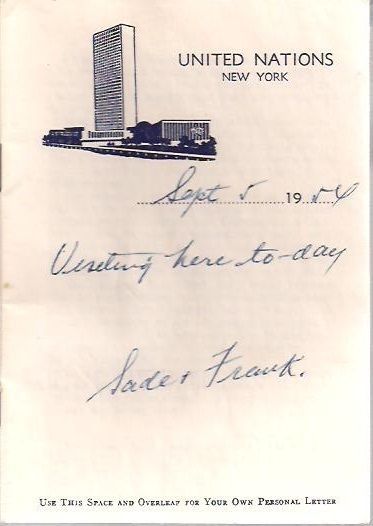 UNITED NATIONS
NEW YORK
Sept 5 1954
Visiting here to-day
Sade & Frank.
USE THIS SPACE AND OVERLEAF FOR YOUR OWN PERSONAL LETTER